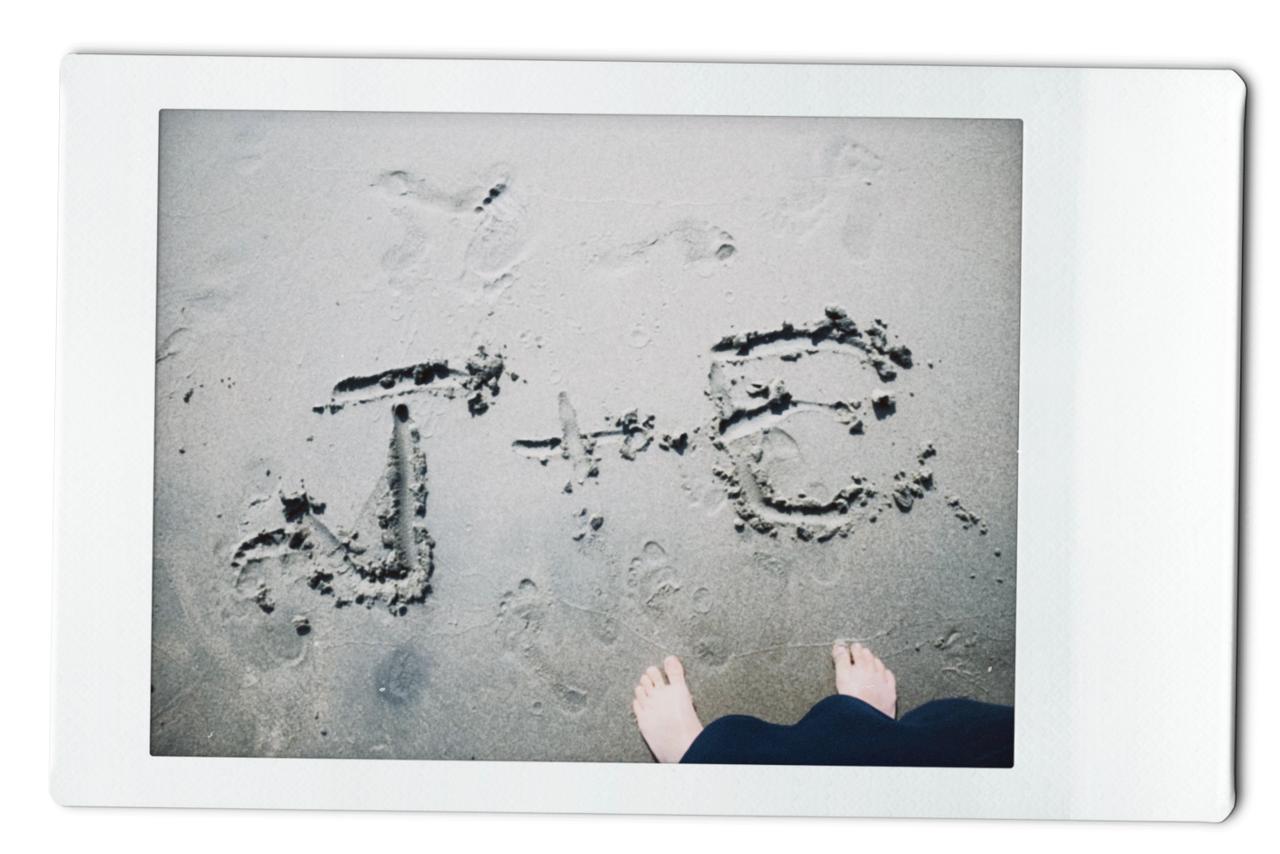 J + E